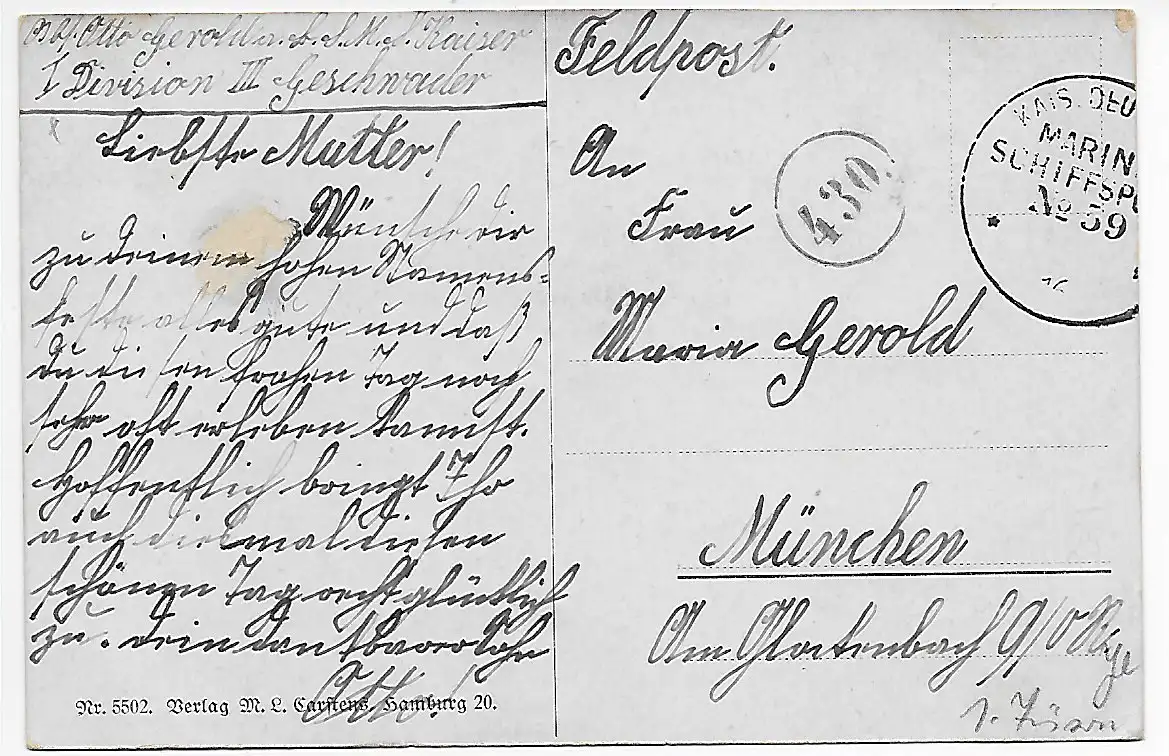 Otto Gerold a. B. S.M.S. Kaiser
I Division III Geschwader
Liebste Mutter!
Wünsche dir
zu deinem hohen Namens-
feste alles gute und daß
du diesen frohen Tag noch
sehr oft erleben kannst.
Hoffentlich bringt Ihr
auch diesmal diesen
schönen Tag recht glücklich
zu. Dein dankbarer Sohn
Otto!
Nr. 5502. Verlag M. L. Carstens, Hamburg 20.
Feldpost.
An
Frau
Maria Gerold
München
Am Glockenbach 9/0
430
KAIS. DEU
MARIN
SCHIFFSPO
No 59